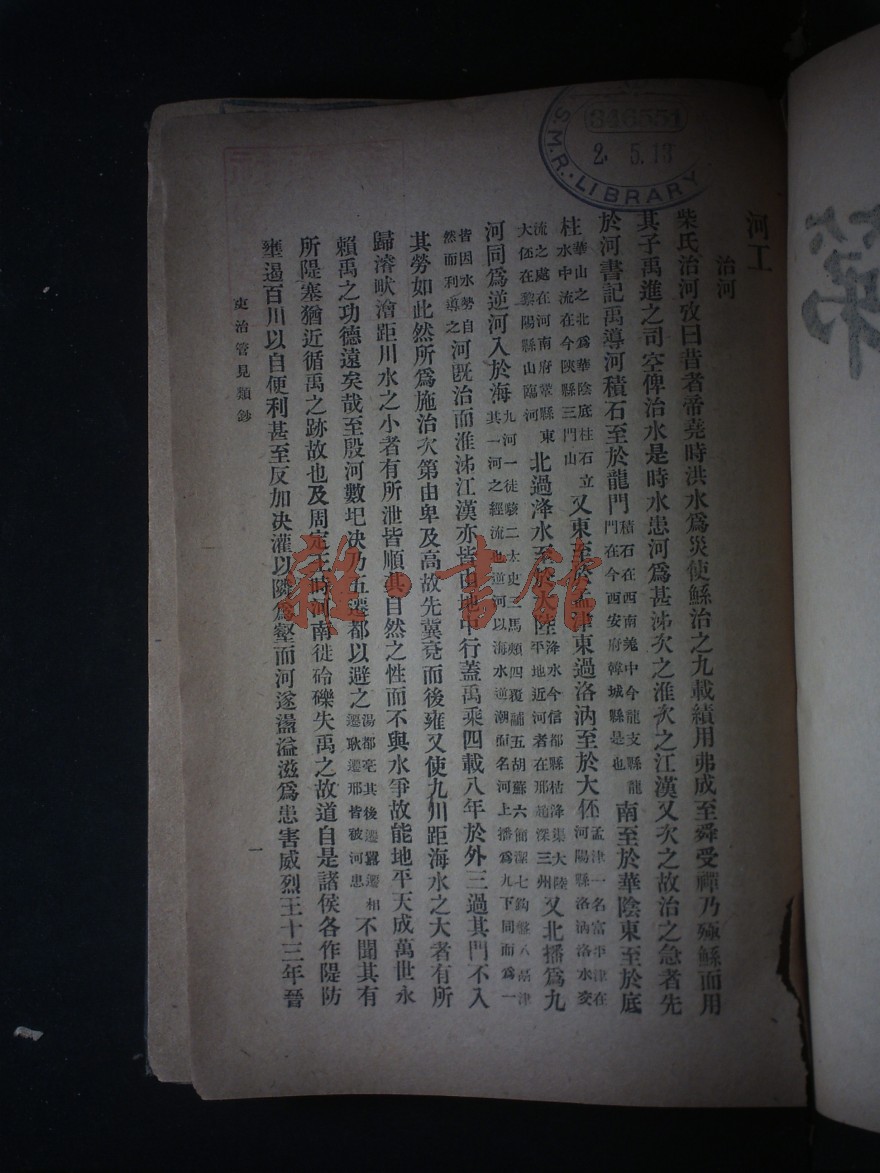 河工
治河
柴氏治河攷曰昔者帝堯時洪水爲災使鯀治之九載績用弗成至舜受禪乃殛鯀而用
其子禹進之司空俾治水是時水患河爲甚泲次之淮次之江漢又次之故治之急者先
於河書記禹導河積石至於龍門積石在西南羗中今龍支縣龍門在今西安府韓城縣是也南至於華陰東至於底
柱華山之北爲華陰底柱石立水中流在今陜縣三門山又東至於孟津東過洛汭至於大伾孟津一名富平津在河陽縣洛汭洛水交
流之處在河南府鞏縣東大伾在黎陽縣山臨河北過洚水至於大陸洚水今信都縣枯洚渠大陸平地近河者在邢趙深三州又北播爲九
河同爲逆河入於海九河一徒駭二太史三馬頰四覆鬴五胡蘇六簡潔七鈎盤八鬲津其一河之經流也逆河以海水逆潮而名河上播爲九下同而爲一
皆因水勢自然而利導之河既治而淮泲江漢亦皆由地中行蓋禹乘四載八年於外三過其門不入
其勞如此然所爲施治次第由卑及高故先冀兗而後雍又使九川距海水之大者有所
歸濬畎澮距川水之小者有所泄皆順其自然之性而不與水爭故能地平天成萬世永
賴禹之功德遠矣哉至殷河數圯決乃五遷都以避之湯都亳其後遷囂遷相遷耿遷邢皆被河患不聞其有
所隄塞猶近循禹之跡故也及周定王時河南徙砱礫失禹之故道自是諸侯各作隄防
壅遏百川以自便利甚至反加決灌以隣爲壑而河遂盪溢滋爲患害威烈王十三年晉
吏治管見類鈔
一
346551
2. 5. 13
S.M.R. LIBRARY
雜·書館